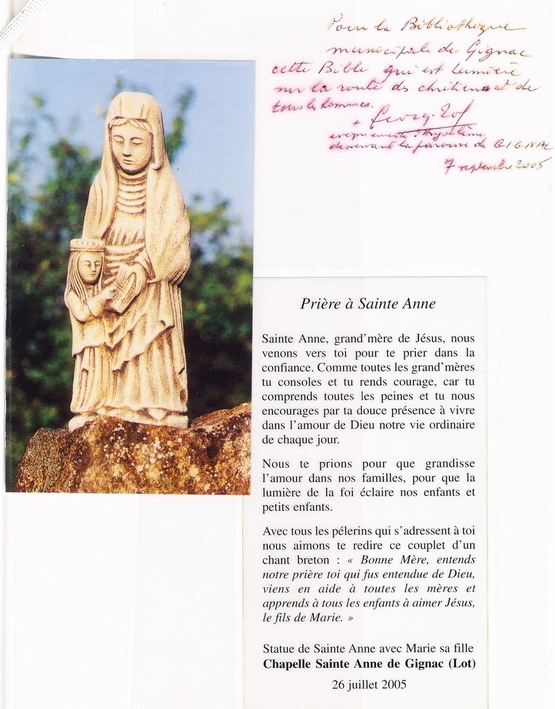 Pour la Bibliothèque
municipale de Gignac
cette Bible qui est lumière
sur la route des chrétiens et de
tous les hommes.
+
devenant la paroisse de GIGNAC
7 septembre 2005
Prière à Sainte Anne
Sainte Anne, grand’mère de Jésus, nous
venons vers toi pour te prier dans la
confiance. Comme toutes les grand’mères
tu consoles et tu rends courage, car tu
comprends toutes les peines et tu nous
encourages par ta douce présence à vivre
dans l’amour de Dieu notre vie ordinaire
de chaque jour.
Nous te prions pour que grandisse
l’amour dans nos familles, pour que la
lumière de la foi éclaire nos enfants et
petits enfants.
Avec tous les pélerins qui s’adressent à toi
nous aimons te redire ce couplet d’un
chant breton : « Bonne Mère, entends
notre prière toi qui fus entendue de Dieu,
viens en aide à toutes les mères et
apprends à tous les enfants à aimer Jésus,
le fils de Marie. »
Statue de Sainte Anne avec Marie sa fille
Chapelle Sainte Anne de Gignac (Lot)
26 juillet 2005